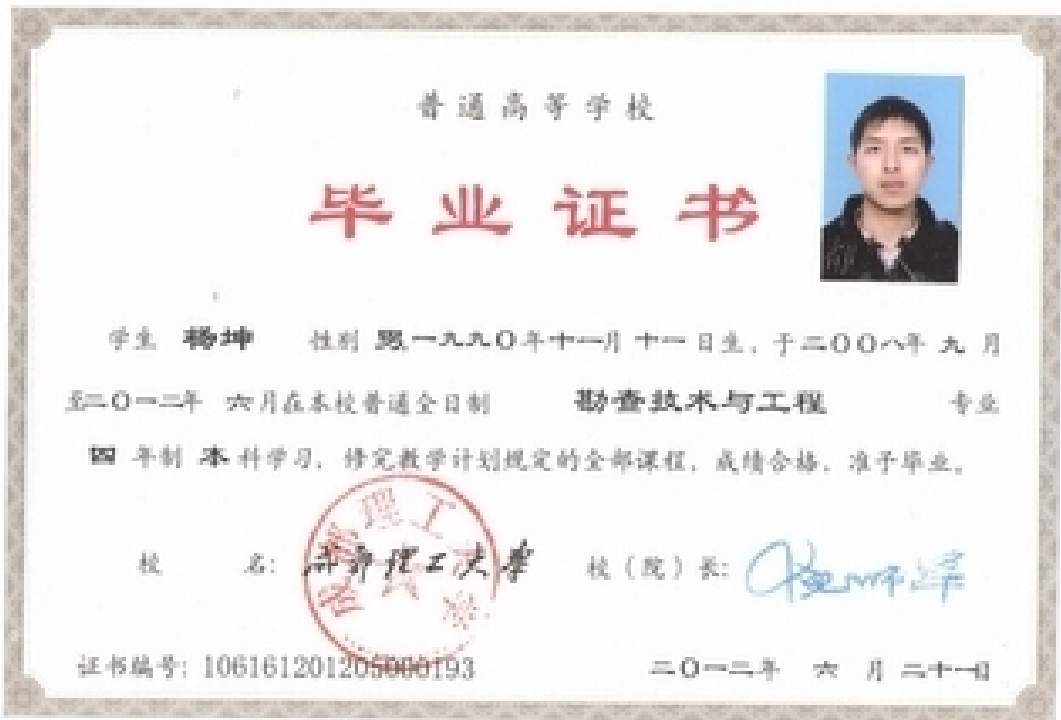 普通高等学校
毕业证书
学生 杨坤 性别 男,一九九〇年十一月十一日生,于二〇〇八年 九 月
至二〇一二年 六月在本校普通全日制 勘查技术与工程 专业
四 年制 本 科学习,修完教学计划规定的全部课程,成绩合格,准予毕业。
校 名: 成都理工大学 校(院)长:
证书编号: 106161201205000193 二〇一二年 六 月 二十一日